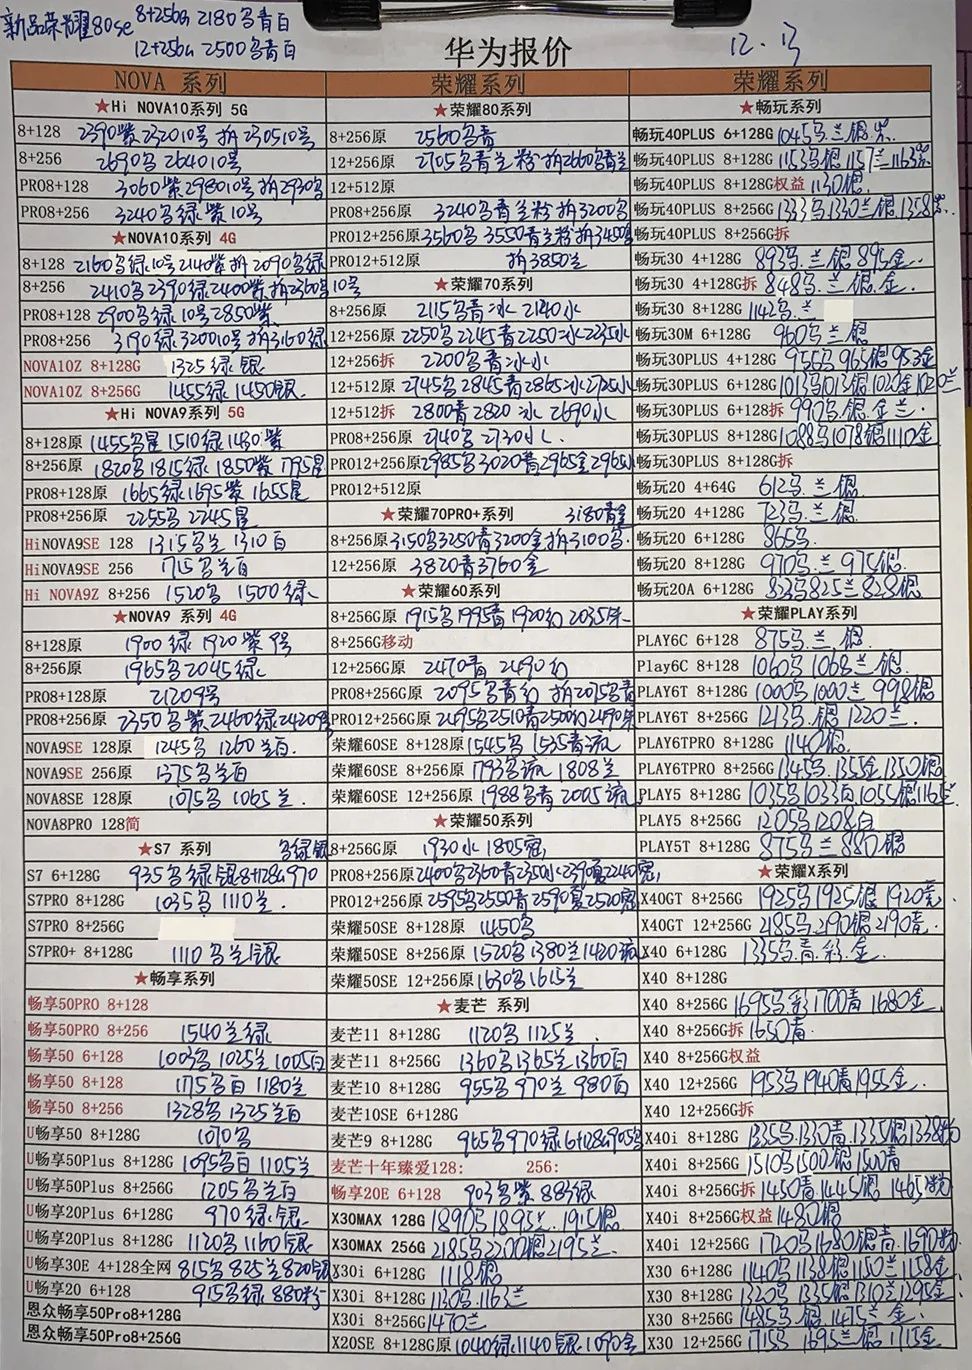 新品荣耀80se 8+256G 2180乌青白
12+256G 2500乌青白
华为报价
12.
NOVA 系列
★Hi NOVA10系列 5G
8+128 2390紫232010号拆230510号
8+256 2690乌264010号
PRO8+128 3060紫298010号拆2930乌
PRO8+256 3240乌绿紫10号
★NOVA10系列 4G
8+128 2160乌绿10号2140紫拆2090乌绿
8+256 2410乌2390绿2400紫拆2360乌10号
PRO8+128 2900乌绿10号2850紫
PRO8+256 3190绿320010号拆3160绿
NOVA10Z 8+128G 1325绿银
NOVA10Z 8+256G 1455绿1450银
★Hi NOVA9系列 5G
8+128原 1455星1510绿1480紫
8+256原 1820乌1815绿1850紫1795星
PRO8+128原 1665绿1695紫1655星
PRO8+256原 2255乌2245星
HiNOVA9SE 128 1315乌兰1310白
HiNOVA9SE 256 1715乌兰白
Hi NOVA9Z 8+256 1520乌1500绿
★NOVA9 系列 4G
8+128原 1900绿1920紫9号
8+256原 1965乌2045绿
PRO8+128原 21209号
PRO8+256原 2350乌紫2460绿24209号
NOVA9SE 128原 1245乌1260兰白
NOVA9SE 256原 1375乌兰白
NOVA8SE 128原 1075乌1065兰
NOVA8PRO 128简
★S7 系列 乌绿银
S7 6+128G 935乌绿银8+128G970
S7PRO 8+128G 1035乌1110兰
S7PRO 8+256G
S7PRO+ 8+128G 1110乌兰银
★畅享系列
畅享50PRO 8+128
畅享50PRO 8+256 1540兰绿
畅享50 6+128 1003乌1025兰1005白
畅享50 8+128 1175乌白1180兰
畅享50 8+256 1328乌1325兰白
U畅享50 8+128G 1070乌
U畅享50Plus 8+128G 1095乌白1105兰
U畅享50Plus 8+256G 1205乌兰白
U畅享20Plus 6+128G 970绿银
U畅享20Plus 8+128G 1120乌1160银
U畅享30E 4+128全网 815乌825兰820银
U畅享20 6+128G 915乌绿880粉
恩众畅享50Pro8+128G
恩众畅享50Pro8+256G
荣耀系列
★荣耀80系列
8+256原 2560乌青
12+256原 2705乌青兰粉拆2660乌青兰
12+512原
PRO8+256原 3240乌青兰粉拆3200乌
PRO12+256原 3560乌3550青兰粉拆3450乌
PRO12+512原 拆3850兰
★荣耀70系列
8+256原 2115乌青冰2140水
12+256原 2250乌2245青2250冰2235水
12+256拆 2200乌青冰水
12+512原 2745乌2845青2865冰2725水
12+512拆 2800青2820冰2690水
PRO8+256原 2740乌2730水
PRO12+256原 2985乌3020青2965金2965水
PRO12+512原
★荣耀70PRO+系列 3180青金
8+256原 3150乌3250青3200金拆3100乌
12+256原 3820青3760金
★荣耀60系列
8+256G原 1915乌1995青1920幻2035朱
8+256G移动
12+256G原 2470青2490幻
PRO8+256G原 2095乌青幻拆2075乌青
PRO12+256G原 2495乌2510青2500幻2490朱
荣耀60SE 8+128原 1545乌1535青流
荣耀60SE 8+256原 1793乌流1808兰
荣耀60SE 12+256原 1988乌青2005流
★荣耀50系列
8+256G原 1930水1805冠
PRO8+256原 2400乌2360青2350水2390夏2240冠
PRO12+256原 2595乌2550青2590夏2520冠
荣耀50SE 8+128原 1450乌
荣耀50SE 8+256原 1520乌1380兰1420流
荣耀50SE 12+256原 1630乌1615兰
★麦芒 系列
麦芒11 8+128G 1120乌1125兰
麦芒11 8+256G 1360乌1365兰1360白
麦芒10 8+128G 955乌970兰980白
麦芒10SE 6+128G
麦芒9 8+128G 965乌970绿6+128G905乌
麦芒十年臻爱128: 256:
畅享20E 6+128 903乌紫885绿
X30MAX 128G 1890乌1895兰1915银
X30MAX 256G 2185乌2200银2195兰
X30i 6+128G 1118银
X30i 8+128G 1130乌1163兰
X30i 8+256G 1470兰
X20SE 8+128G原 1040绿1140银1090金
荣耀系列
★畅玩系列
畅玩40PLUS 6+128G 1045乌兰银
畅玩40PLUS 8+128G 1153乌银1157兰1163
畅玩40PLUS 8+128G权益 1130银
畅玩40PLUS 8+256G 1333乌1330兰银1358
畅玩40PLUS 8+256G拆
畅玩30 4+128G 893乌兰银895金
畅玩30 4+128G拆 848乌兰银金
畅玩30 8+128G 1142乌兰
畅玩30M 6+128G 960乌兰银
畅玩30PLUS 4+128G 955乌965银953金
畅玩30PLUS 6+128G 1013乌1013银1020金1020兰
畅玩30PLUS 6+128拆 990乌银金兰
畅玩30PLUS 8+128G 1088乌1078银1110金
畅玩30PLUS 8+128G拆
畅玩20 4+64G 612乌兰银
畅玩20 4+128G 723乌兰银
畅玩20 6+128G 865乌
畅玩20 8+128G 970乌兰975银
畅玩20A 6+128G 823乌825兰828银
★荣耀PLAY系列
PLAY6C 6+128 875乌兰银
Play6C 8+128 1060乌1068兰银
PLAY6T 8+128G 1000乌1000兰998银
PLAY6T 8+256G 1213乌银1220兰
PLAY6TPRO 8+128G 1140银
PLAY6TPRO 8+256G 1345乌1355金1350银
PLAY5 8+128G 1035乌1033白1055银1165兰
PLAY5 8+256G 1205乌1208白
PLAY5T 8+128G 875乌兰880银
★荣耀X系列
X40GT 8+256G 1925乌1925银1920竞
X40GT 12+256G 2185乌2190银2190竞
X40 6+128G 1335乌青彩金
X40 8+128G
X40 8+256G 1695乌彩1700青1680金
X40 8+256G拆 1650青
X40 8+256G权益
X40 12+256G 1953乌1940青1955金
X40 12+256G拆
X40i 8+128G 1335乌1330青1335银1338粉
X40i 8+256G 1510乌1500银1500青
X40i 8+256G拆 1450青1445银1465粉
X40i 8+256G权益 1480银
X40i 12+256G 1720乌1680银青1690粉
X30 6+128G 1140乌1138银1150兰1158金
X30 8+128G 1320乌1335银1310兰1295金
X30 8+256G 1485乌银1475兰金
X30 12+256G 1715乌1695兰银1715金